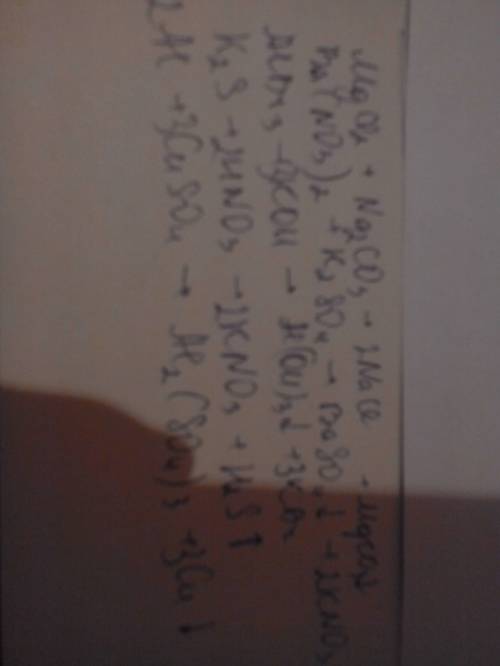 MgCl2 + Na2CO3 → 2NaCl + MgCO3↓
Ba(NO3)2 + K2SO4 → BaSO4↓ + 2KNO3
3KOH → Al(OH)3↓
K2S + 2HNO3 → 2KNO3 + H2S↑
2Al + 3CuSO4 → Al2(SO4)3 + 3Cu↓